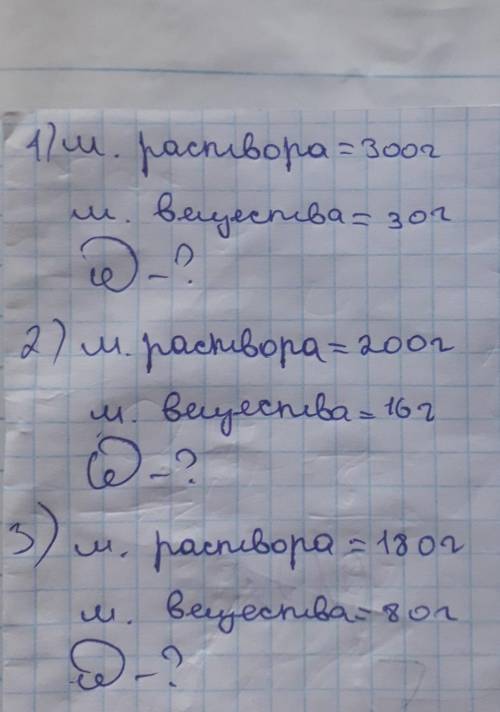 1) м. раствора = 300г
м. вещества = 30г
ω - ?
2) м. раствора = 200г
м. вещества = 16г
ω - ?
3) м. раствора = 180г
м. вещества = 80г
ω - ?